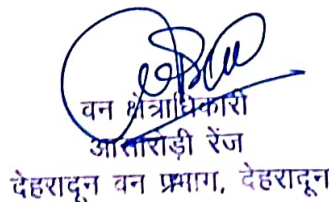 वन क्षेत्राधिकारी
आसारोड़ी रेंज
देहरादून वन प्रभाग, देहरादून